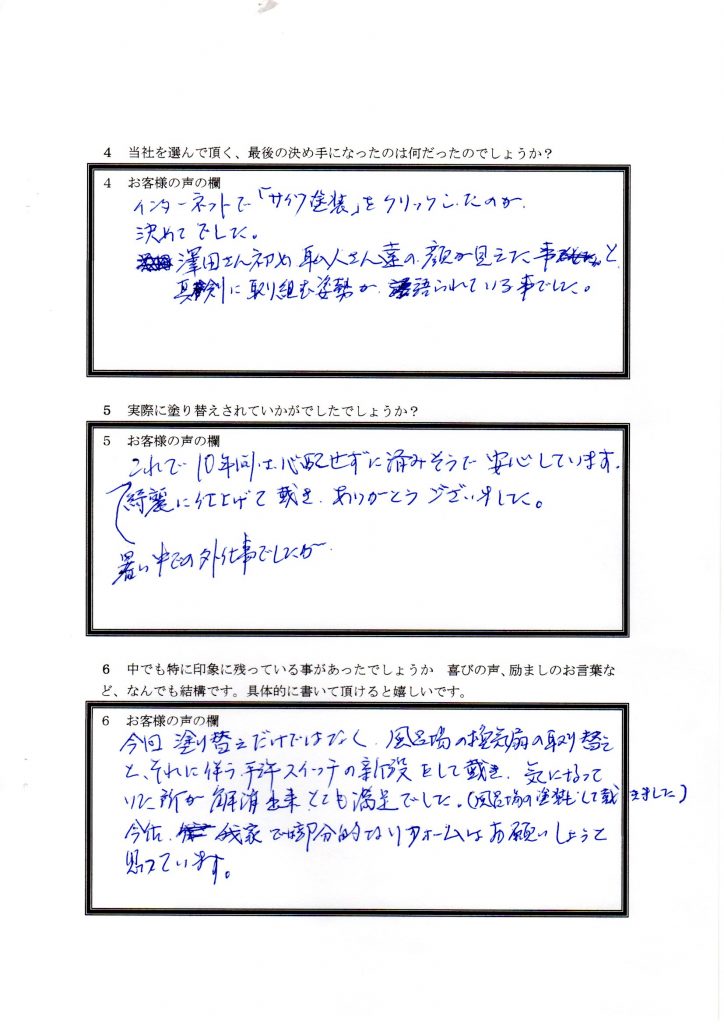 4　当社を選んで頂く、最後の決め手になったのは何だったのでしょうか？
4　お客様の声の欄
インターネットで「サイフ塗装」をクリックしたのが、
決めてでした。
澤田さん初め職人さん達の顔が見えた事と、
真剣に取り組む姿勢が、語られている事でした。
5　実際に塗り替えされていかがでしたでしょうか？
5　お客様の声の欄
これで10年間は心配せずに済みそうで安心しています。
綺麗に仕上げて戴き、ありがとうございました。
暑い中での外仕事でしたが
6　中でも特に印象に残っている事があったでしょうか　喜びの声、励ましのお言葉な
ど、なんでも結構です。具体的に書いて頂けると嬉しいです。
6　お客様の声の欄
今回塗り替えだけではなく、風呂場の換気扇の取り替え
と、それに伴う スイッチの新設をして戴き、気になって
いた所が解消出来とても満足でした。(風呂場の塗装もして戴きました)
今后、我家で部分的なリフォームはお願いしようと
思っています。